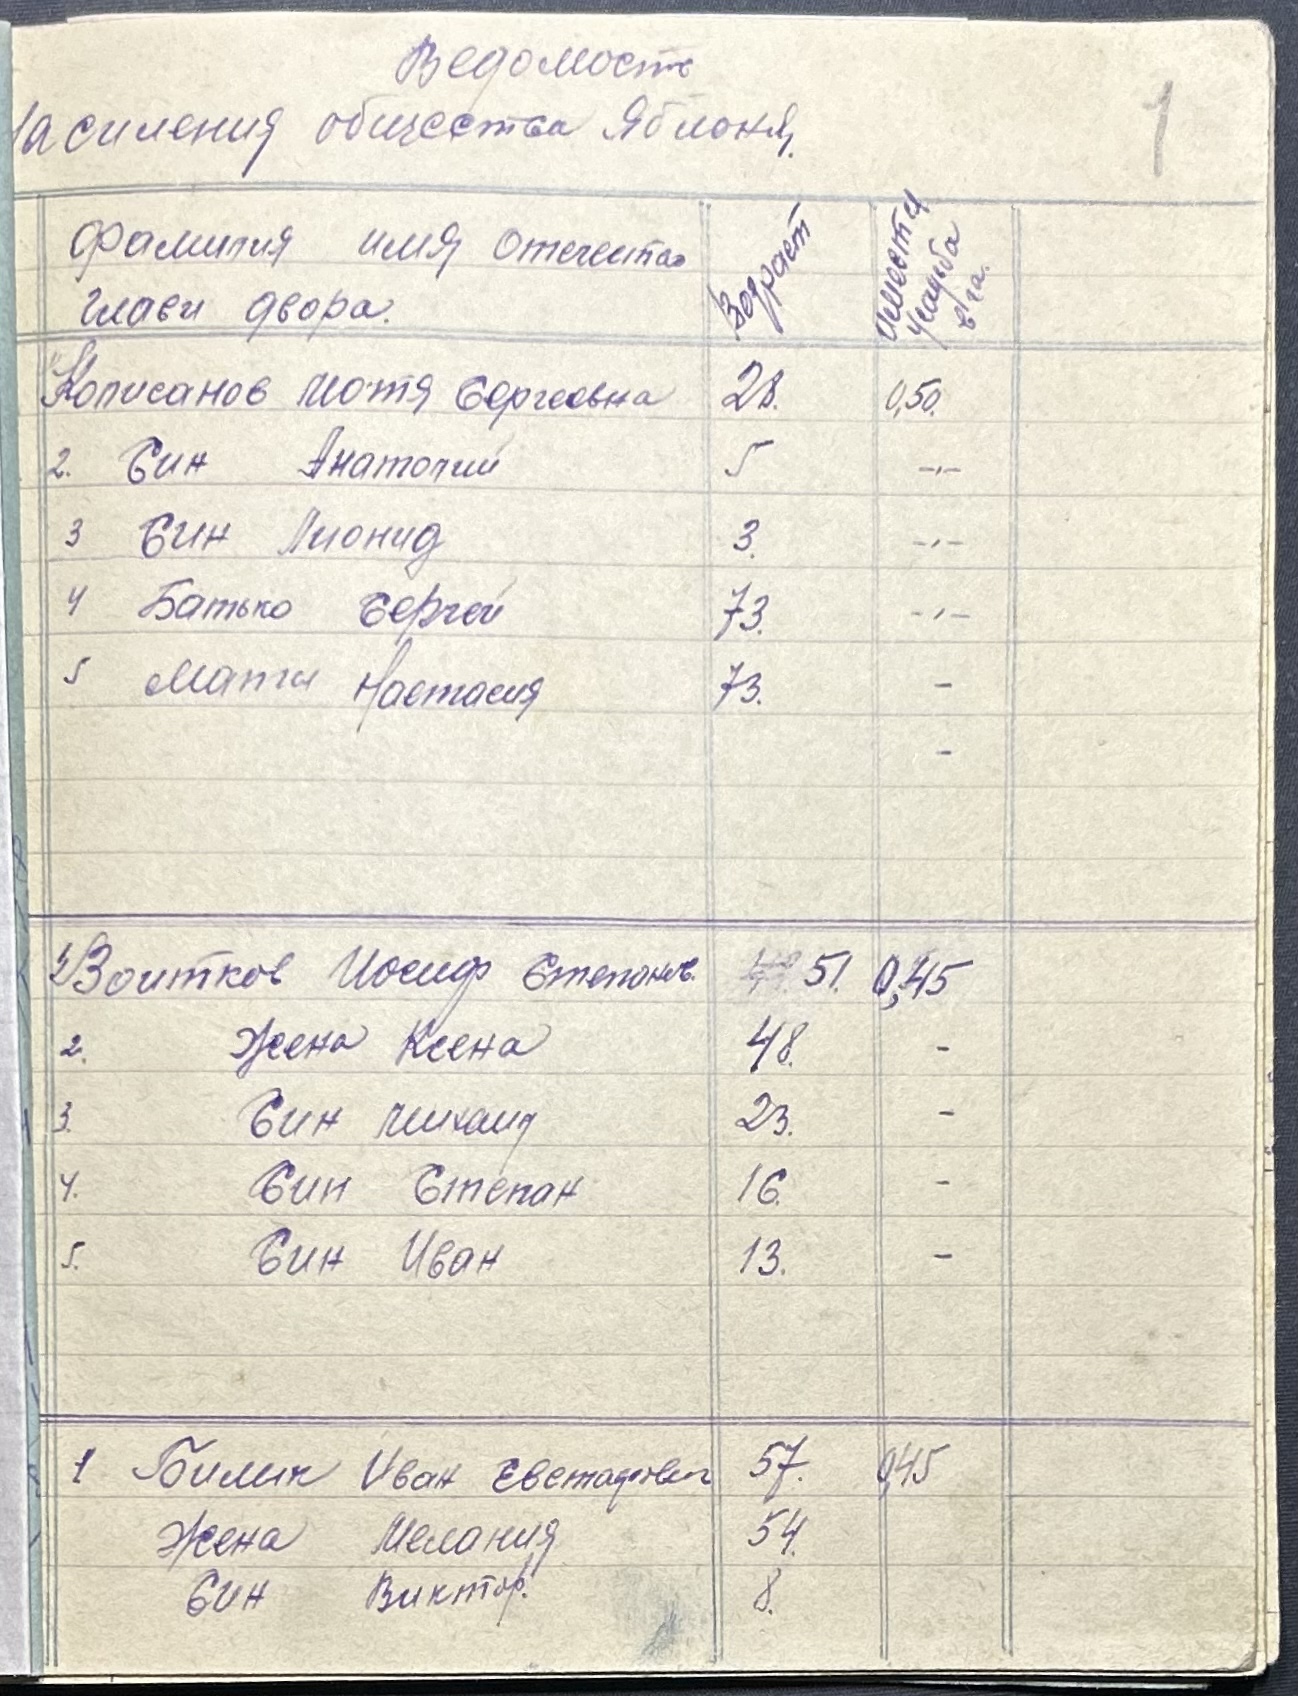 Ведомость
1
Насиления общества Яблоня.
Фамилия имя Отечество
глави двора.
Возраст
Имеется усадьба в га.
Кописанов Мотя Сергеовна 28. 0,50.
2. Син Анатолий 5 -"-
3 Син Лионид 3. -"-
4 Батько Сергей 73. -"-
5 Мати Настасия 73. -
-
1 Воитков Иосиф Степанов. 51. 0,45
2. Жена Ксена 48. -
3. Син Михаил 23. -
4. Син Степан 16. -
5. Син Иван 13. -
1 Билик Иван Евстафович 57. 0,45
Жена Мелания 54.
Син Виктор. 8.